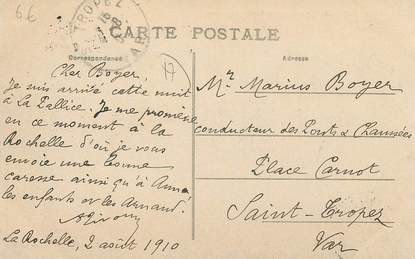 66
TROPEZ
CARTE POSTALE
Correspondance
Adresse
Cher Boyer,
Je suis arrivé cette nuit
à La Pallice. Je me promène
en ce moment à la
Rochelle d'où je vous
envoie une bonne
caresse ainsi qu'à Anna
les enfants et les Arnaud.
La Rochelle, 2 août 1910
17
Mr Marius Boyer
conducteur des Ponts & Chaussées
Place Carnot
Saint-Tropez
Var